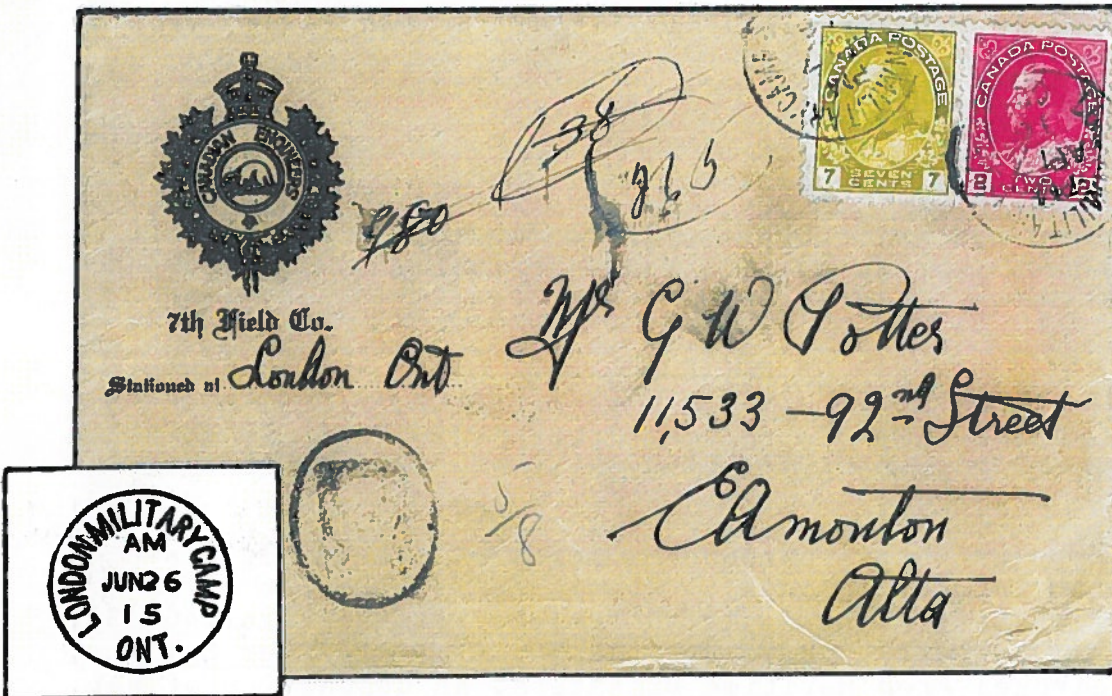 CANADIAN ENGINEERS
7th Field Co.
Stationed at London Ont
980
38
CANADA POSTAGE
7 SEVEN CENTS 7
CANADA POSTAGE
2 TWO CENTS 2
Mr G W Potter
11,533 - 92nd Street
Edmonton
Alta
5/8
LONDON MILITARY CAMP
AM
JUN 26
15
ONT.